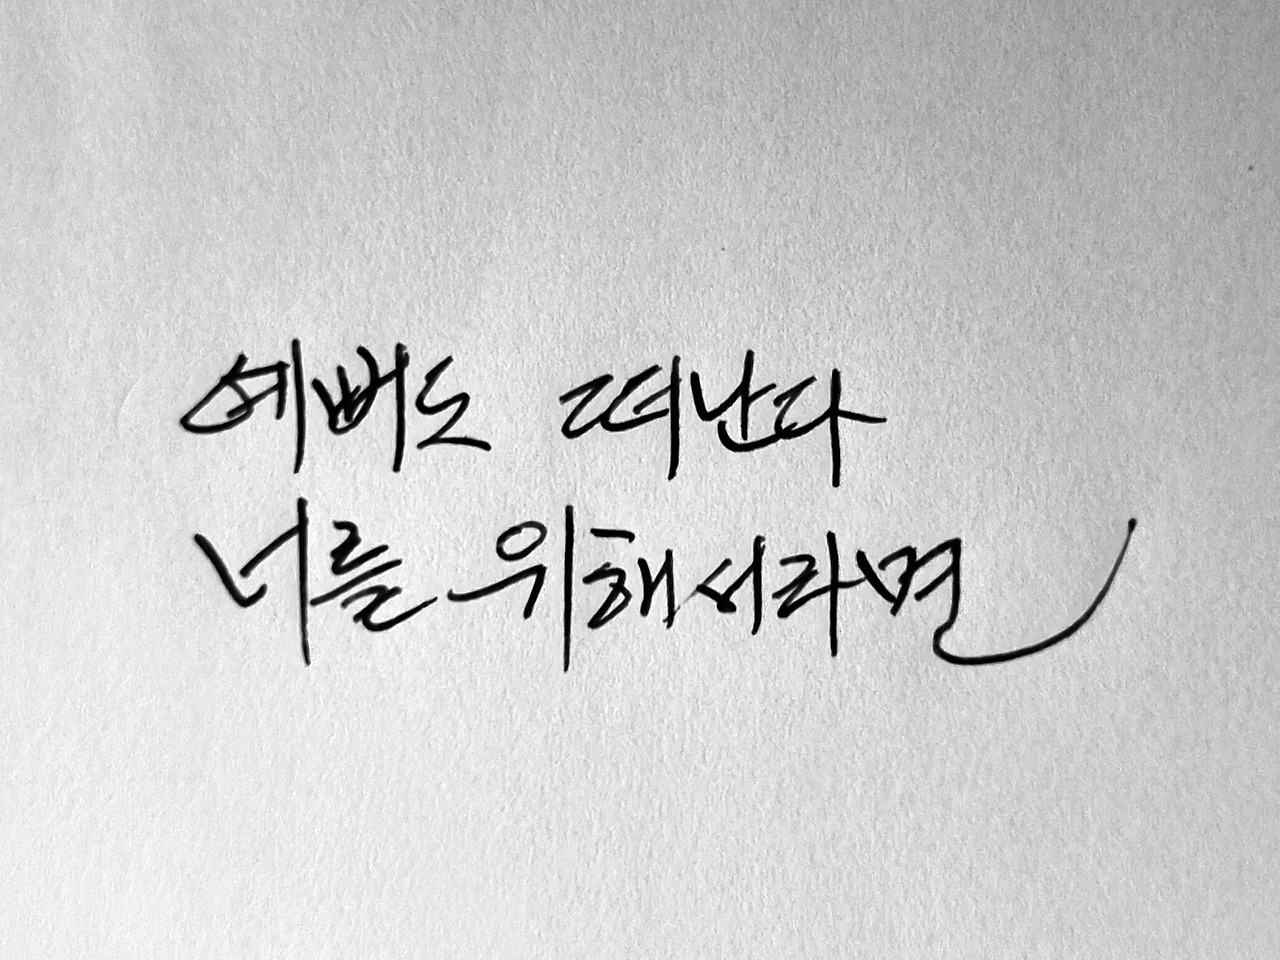 예뻐도 떠난다
너를 위해서라면